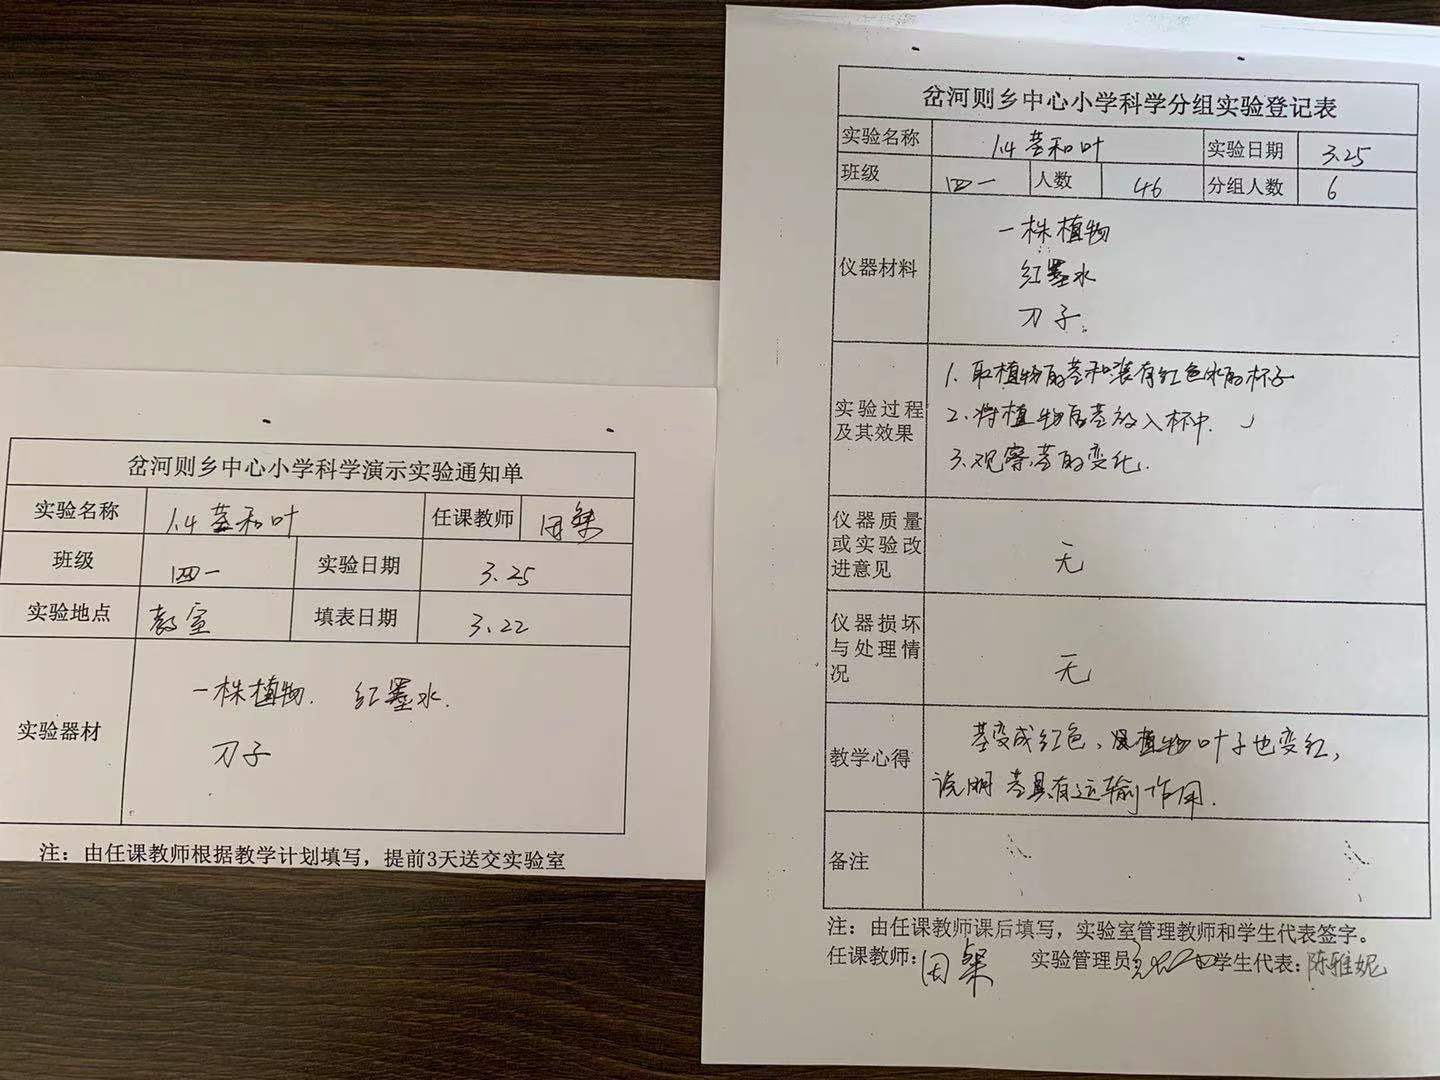 岔河则乡中心小学科学演示实验通知单
实验名称 1.4 茎和叶 任课教师
班级 四一 实验日期 3.25
实验地点 教室 填表日期 3.22
实验器材
一株植物. 红墨水.
刀子
注：由任课教师根据教学计划填写，提前3天送交实验室
岔河则乡中心小学科学分组实验登记表
实验名称 1.4 茎和叶 实验日期 3.25
班级 四一 人数 46 分组人数 6
仪器材料
一株植物
红墨水
刀子.
实验过程
及其效果
1. 取植物的茎和装有红色水的杯子
2. 将植物的茎放入杯中.
3. 观察茎的变化.
仪器质量
或实验改
进意见
无
仪器损坏
与处理情
况
无
教学心得
茎变成红色、植物叶子也变红,
说明茎具有运输作用.
备注
注：由任课教师课后填写，实验室管理教师和学生代表签字。
任课教师: 实验管理员 学生代表: 陈雅妮